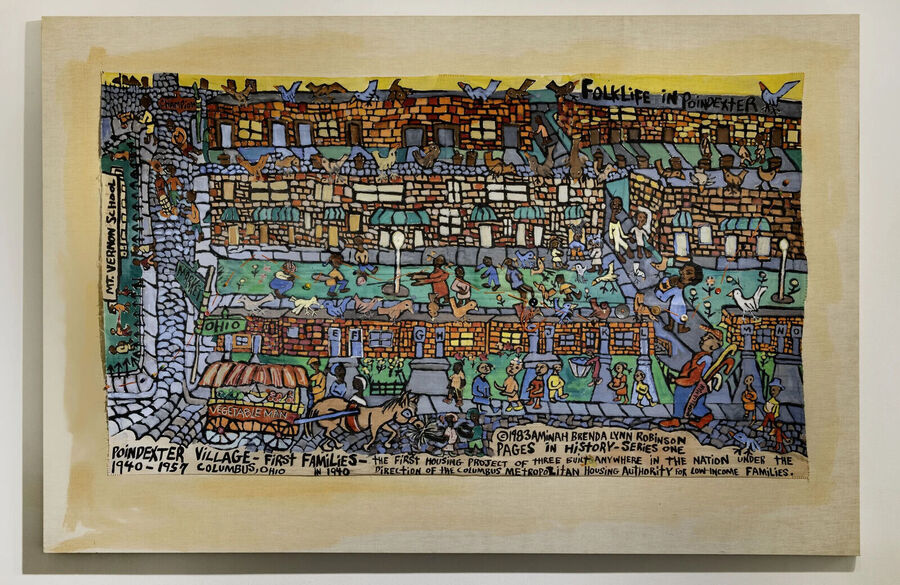 FOLKLIFE IN POINDEXTER
CHAMPION
MT. VERNON SCHOOL
OHIO
VEGETABLE MAN
M N O
©1983 AMINAH BRENDA LYNN ROBINSON
PAGES IN HISTORY-SERIES ONE
POINDEXTER VILLAGE - FIRST FAMILIES - THE FIRST HOUSING PROJECT OF THREE BUILT ANYWHERE IN THE NATION UNDER THE
1940-1957 COLUMBUS, OHIO IN 1940 DIRECTION OF THE COLUMBUS METROPOLITAN HOUSING AUTHORITY FOR LOW-INCOME FAMILIES.